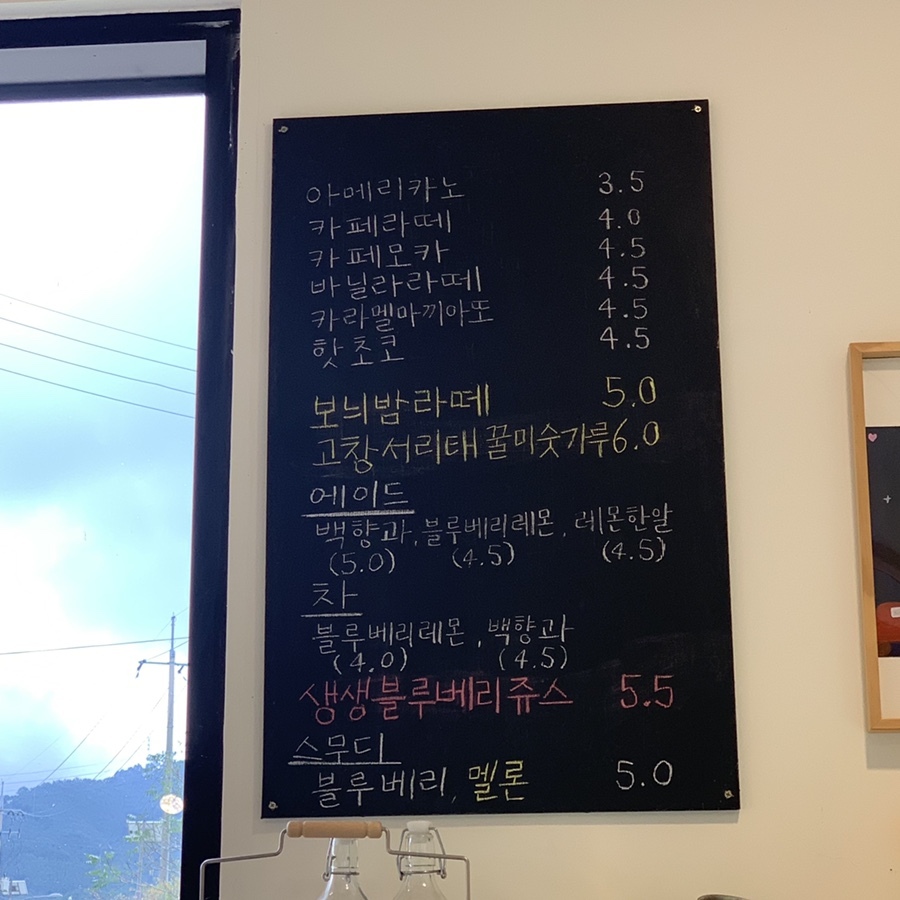 아메리카노 3.5
카페라떼 4.0
카페모카 4.5
바닐라라떼 4.5
카라멜마끼아또 4.5
핫초코 4.5
보늬밤라떼 5.0
고창서리태꿀미숫가루 6.0
에이드
백향과, 블루베리레몬, 레몬한알
(5.0) (4.5) (4.5)
차
블루베리레몬, 백향과
(4.0) (4.5)
생생블루베리쥬스 5.5
스무디
블루베리, 멜론 5.0